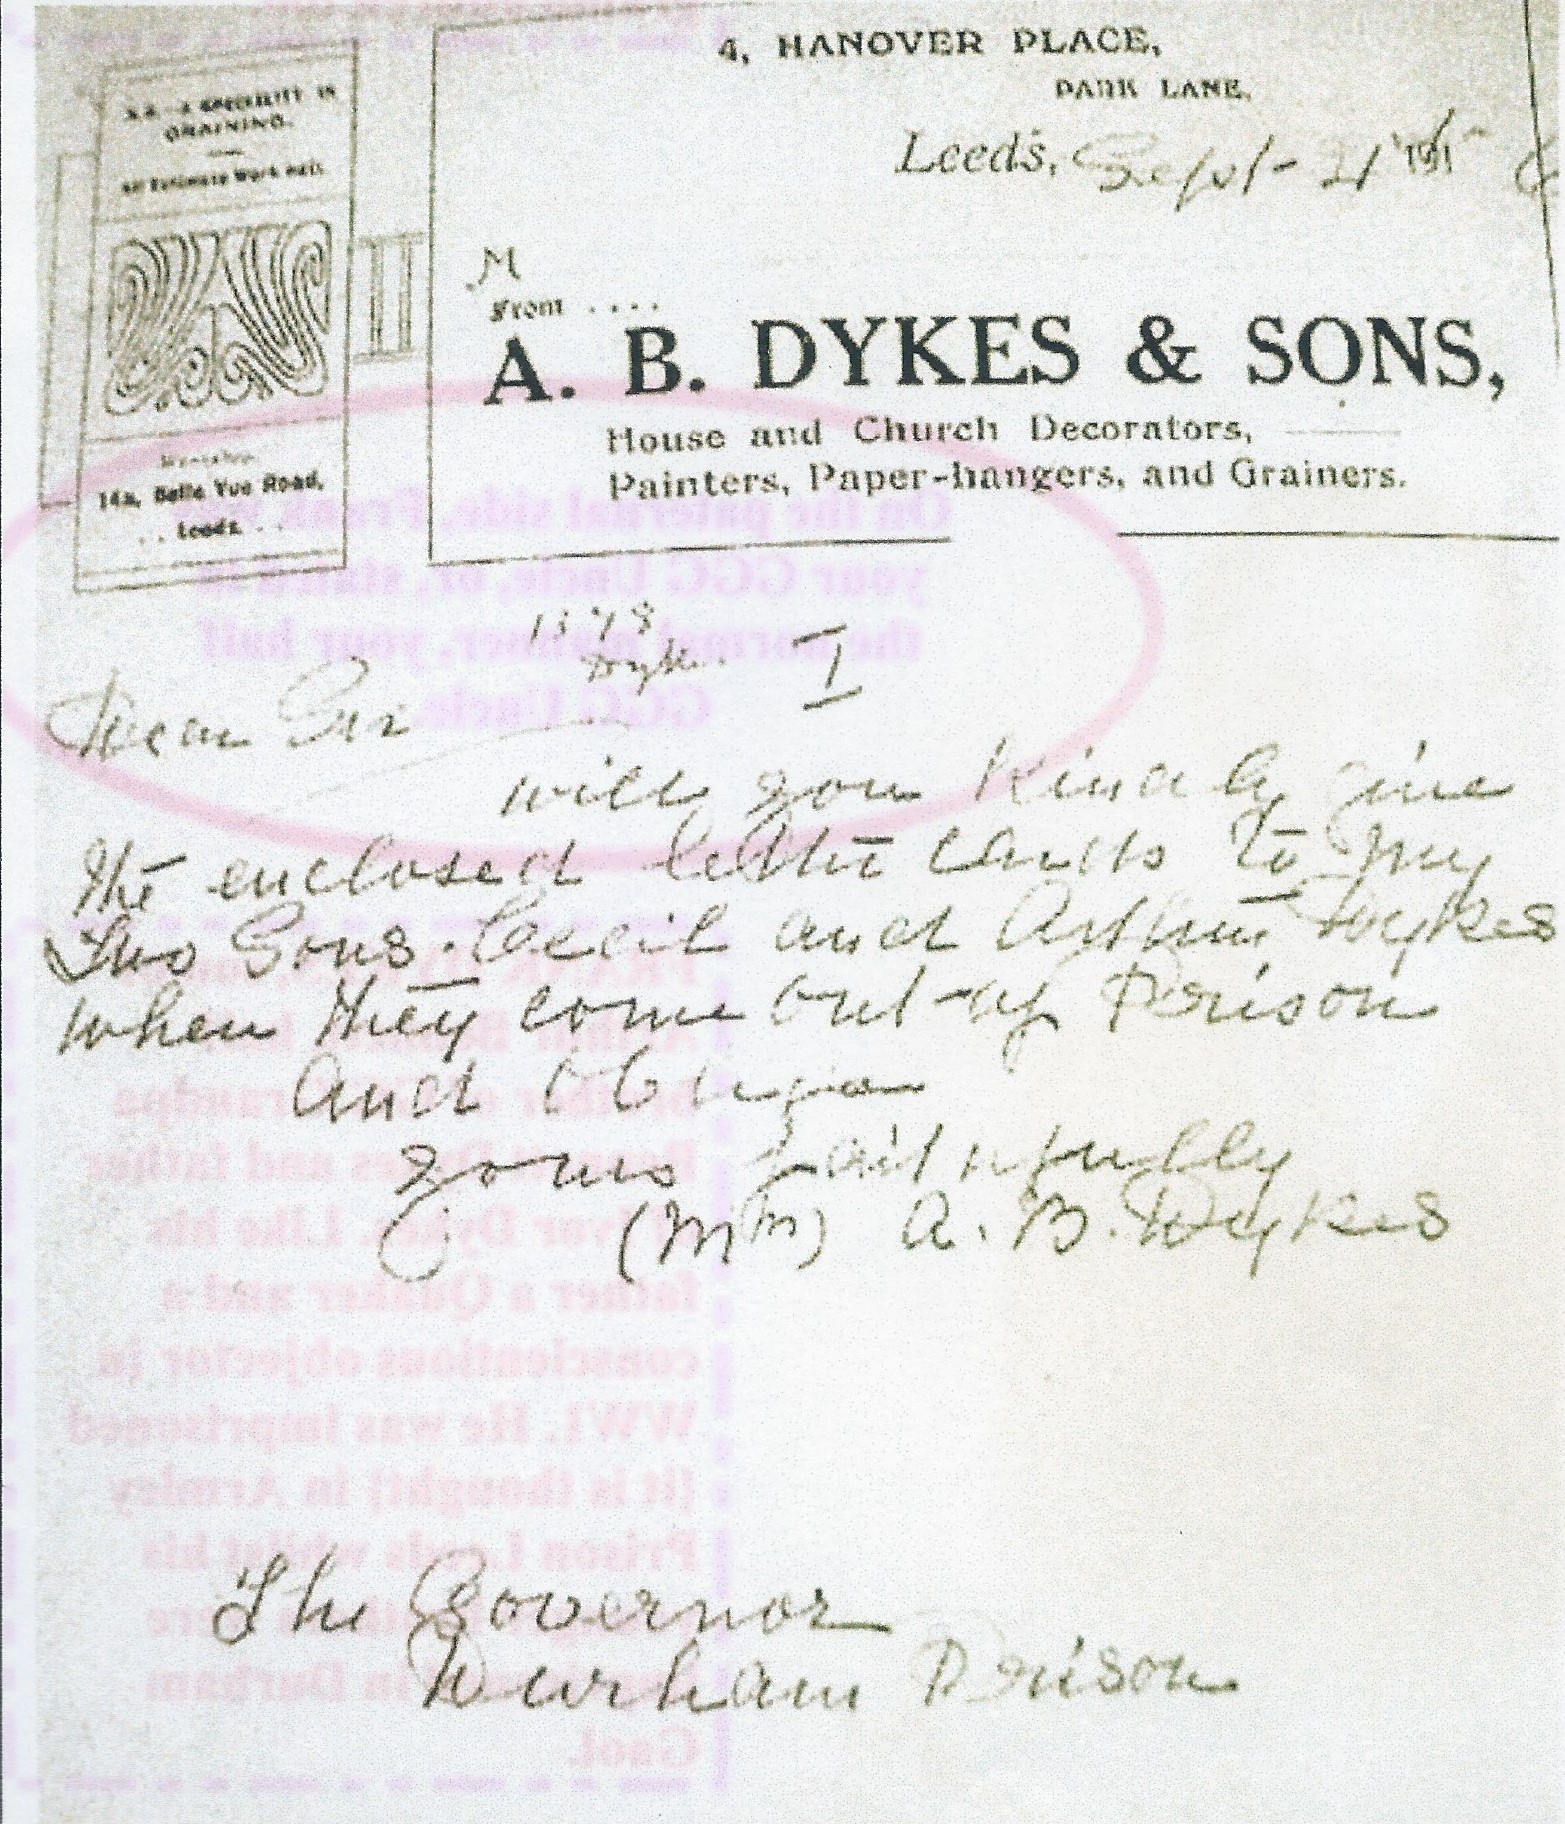 4, HANOVER PLACE,
PARK LANE,
Leeds, Sept- 4 191 6
A SPECIALITY IN
GRAINING.
All Estimate Work
Workshop
14a, Belle Vue Road,
. . Leeds. . .
M
From . . . .
A. B. DYKES & SONS,
House and Church Decorators,
Painters, Paper-hangers, and Grainers.
1378
Dyke. I
Dear Sir
will you kindly give
the enclosed letter cards to my
Two Sons. Cecil and Arthur Dykes
when they come out-of Prison
and oblige
yours faithfully
(Mrs) A. B. Dykes
The Governor
Durham Prison
On the paternal side, Frank
your GGG Uncle, or, stated in
the normal manner, your half
GGG Uncle
and father
Ivor Dykes. Like his
father a Quaker and a
conscientious objector in
WW1. He was imprisoned
(it is thought) in Armley
Prison Leeds whilst his
in Durham
Gaol.